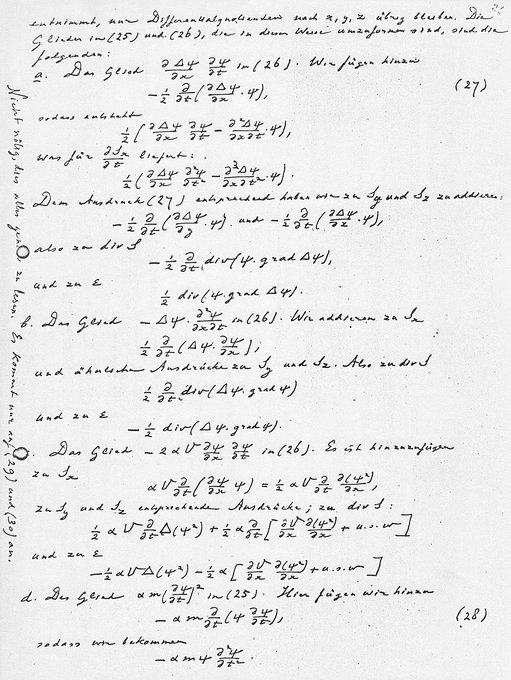 entnimmt, nur Differentialquotienten nach x, y, z übrig bleiben. Die
Glieder in (25) und (26), die in dieser Weise umzuformen sind, sind die
folgenden:
a. Das Glied ∂Δψ/∂x ∂ψ/∂t in (26). Wir fügen hinzu
−½ ∂/∂t (∂Δψ/∂x · ψ), (27)
sodass entsteht
½ (∂Δψ/∂x ∂ψ/∂t − ∂²Δψ/∂x∂t · ψ),
was für ∂Sx/∂t liefert:
½ (∂Δψ/∂x ∂²ψ/∂t² − ∂³Δψ/∂x∂t² · ψ).
Dem Ausdruck (27) entsprechend haben wir zu Sy und Sz zu addieren:
−½ ∂/∂t (∂Δψ/∂y · ψ) und −½ ∂/∂t (∂Δψ/∂z · ψ),
also zu div S
−½ ∂/∂t div (ψ. grad Δψ),
und zu ε
½ div (ψ. grad Δψ).
b. Das Glied −Δψ · ∂²ψ/∂x∂t in (26). Wir addieren zu Sx
½ ∂/∂t (Δψ · ∂ψ/∂x);
und ähnliche Ausdrücke zu Sy und Sz. Also zu div S
½ ∂/∂t div (Δψ. grad ψ)
und zu ε
−½ div (Δψ. grad ψ).
Das Glied −2αV ∂ψ/∂x ∂ψ/∂t in (26). Es ist hinzuzufügen
zu Sx
αV ∂/∂t (∂ψ/∂x ψ) = ½ αV ∂/∂t ∂(ψ²)/∂x,
zu Sy und Sz entsprechende Ausdrücke; zu div S:
½ αV ∂/∂t Δ(ψ²) + ½ α ∂/∂t [∂V/∂x ∂(ψ²)/∂x + u.s.w]
und zu ε
−½ αV Δ(ψ²) − ½ α [∂V/∂x ∂(ψ²)/∂x + u.s.w]
d. Das Glied αm (∂ψ/∂t)² in (25). Hier fügen wir hinzu
−αm ∂/∂t (ψ ∂ψ/∂t), (28)
sodass wir bekommen
−αmψ ∂²ψ/∂t².
Nicht nötig, dies alles genau zu lesen. Es kommt nur auf (29) und (30) an.